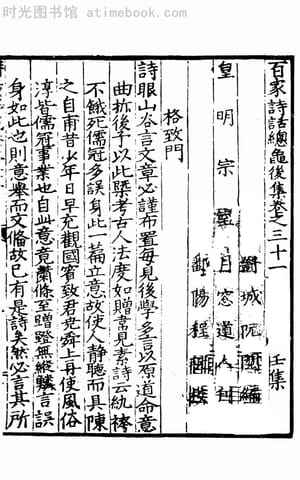 时光图书馆 www.atimebook.com
百家詩話總龜後集卷之三十一　壬集
皇明宗室月窓道人刊
鄱陽程
格致門
詩眼山谷言文章必謹布置每見後學多言以原道命意
曲折後予以此槩考古人法度如贈韋見素詩云紈袴
不餓死儒冠多誤身此一篇立意故使人靜聽而具陳
之自甫昔少年日早充觀國賓致君堯舜上再使風俗
淳皆儒冠事業也自此意竟蕭條至蹭蹬無縱鱗言誤
身如此也則意舉而文備故已有是詩矣然必言其所